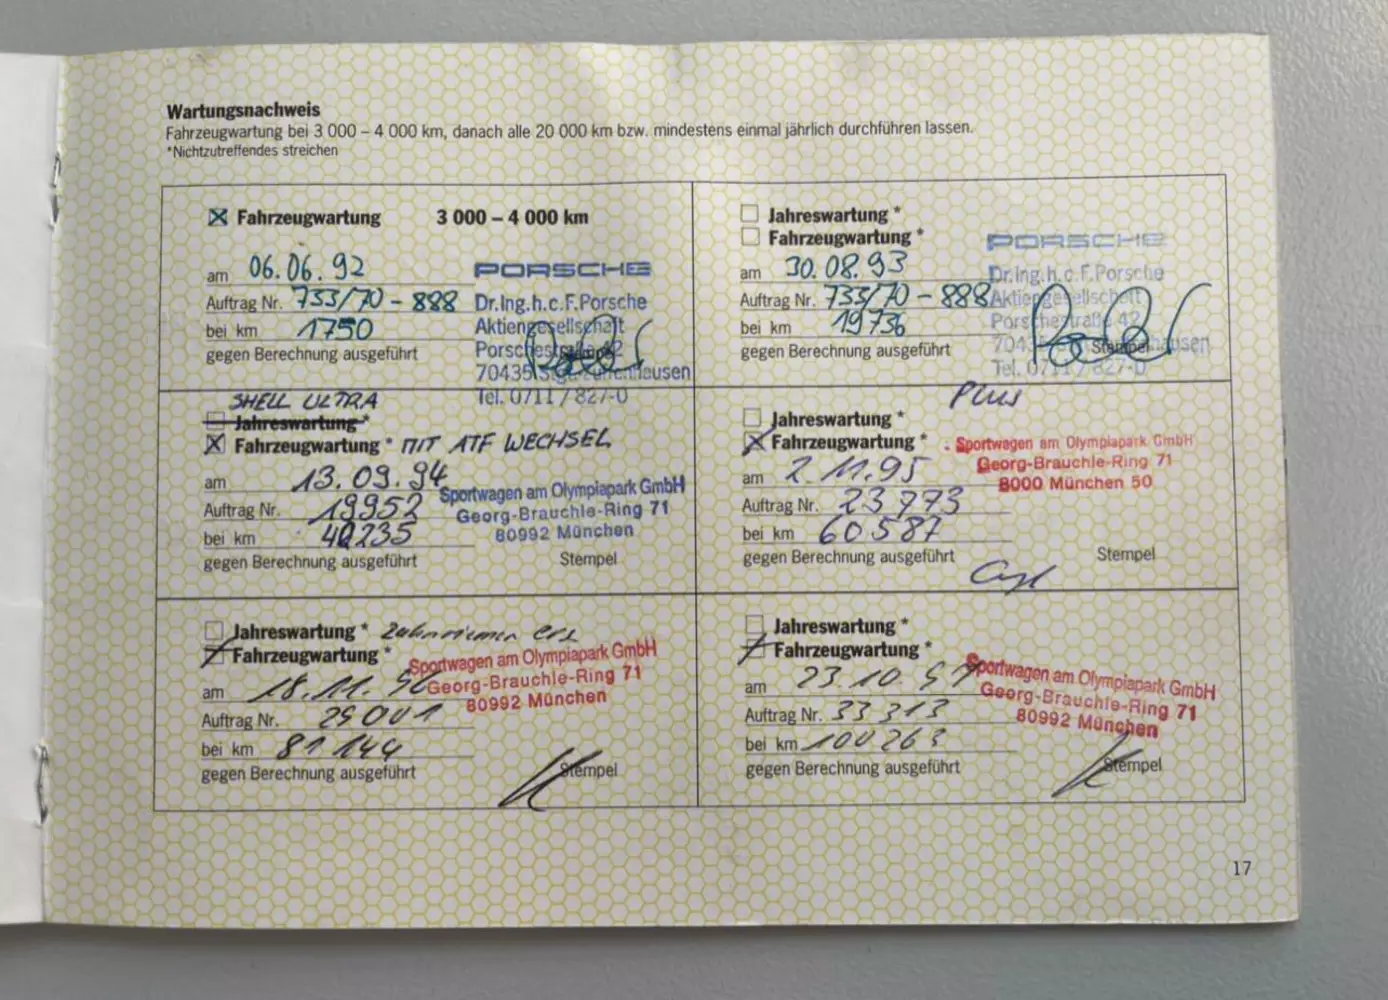 Wartungsnachweis
Fahrzeugwartung bei 3 000 – 4 000 km, danach alle 20 000 km bzw. mindestens einmal jährlich durchführen lassen.
*Nichtzutreffendes streichen
Fahrzeugwartung 3 000 – 4 000 km
am 06.06.92
Auftrag Nr. 733/70 - 888
bei km 1750
gegen Berechnung ausgeführt
PORSCHE
Dr.Ing.h.c.F.Porsche
Aktiengesellschaft
Porschestraße 42
70435 Stgt.-Zuffenhausen
Tel. 0711/827-0
Jahreswartung *
Fahrzeugwartung *
am 30.08.93
Auftrag Nr. 733/70 - 888
bei km 19736
gegen Berechnung ausgeführt
PORSCHE
Dr.Ing.h.c.F.Porsche
Aktiengesellschaft
Porschestraße 42
Stempel
Tel. 0711/827-0
SHELL ULTRA
Jahreswartung *
Fahrzeugwartung * MIT ATF WECHSEL
am 13.09.94
Auftrag Nr. 19952
bei km 40235
gegen Berechnung ausgeführt
Sportwagen am Olympiapark GmbH
Georg-Brauchle-Ring 71
80992 München
Stempel
Plus
Jahreswartung *
Fahrzeugwartung *
am 2.11.95
Auftrag Nr. 23773
bei km 60587
gegen Berechnung ausgeführt
Sportwagen am Olympiapark GmbH
Georg-Brauchle-Ring 71
8000 München 50
Stempel
Jahreswartung * Zahnriemen ers
Fahrzeugwartung *
am 18.11.96
Auftrag Nr. 29001
bei km 81144
gegen Berechnung ausgeführt
Sportwagen am Olympiapark GmbH
Georg-Brauchle-Ring 71
80992 München
Stempel
Jahreswartung *
Fahrzeugwartung *
am 23.10.97
Auftrag Nr. 33313
bei km 100263
gegen Berechnung ausgeführt
Sportwagen am Olympiapark GmbH
Georg-Brauchle-Ring 71
80992 München
Stempel
17